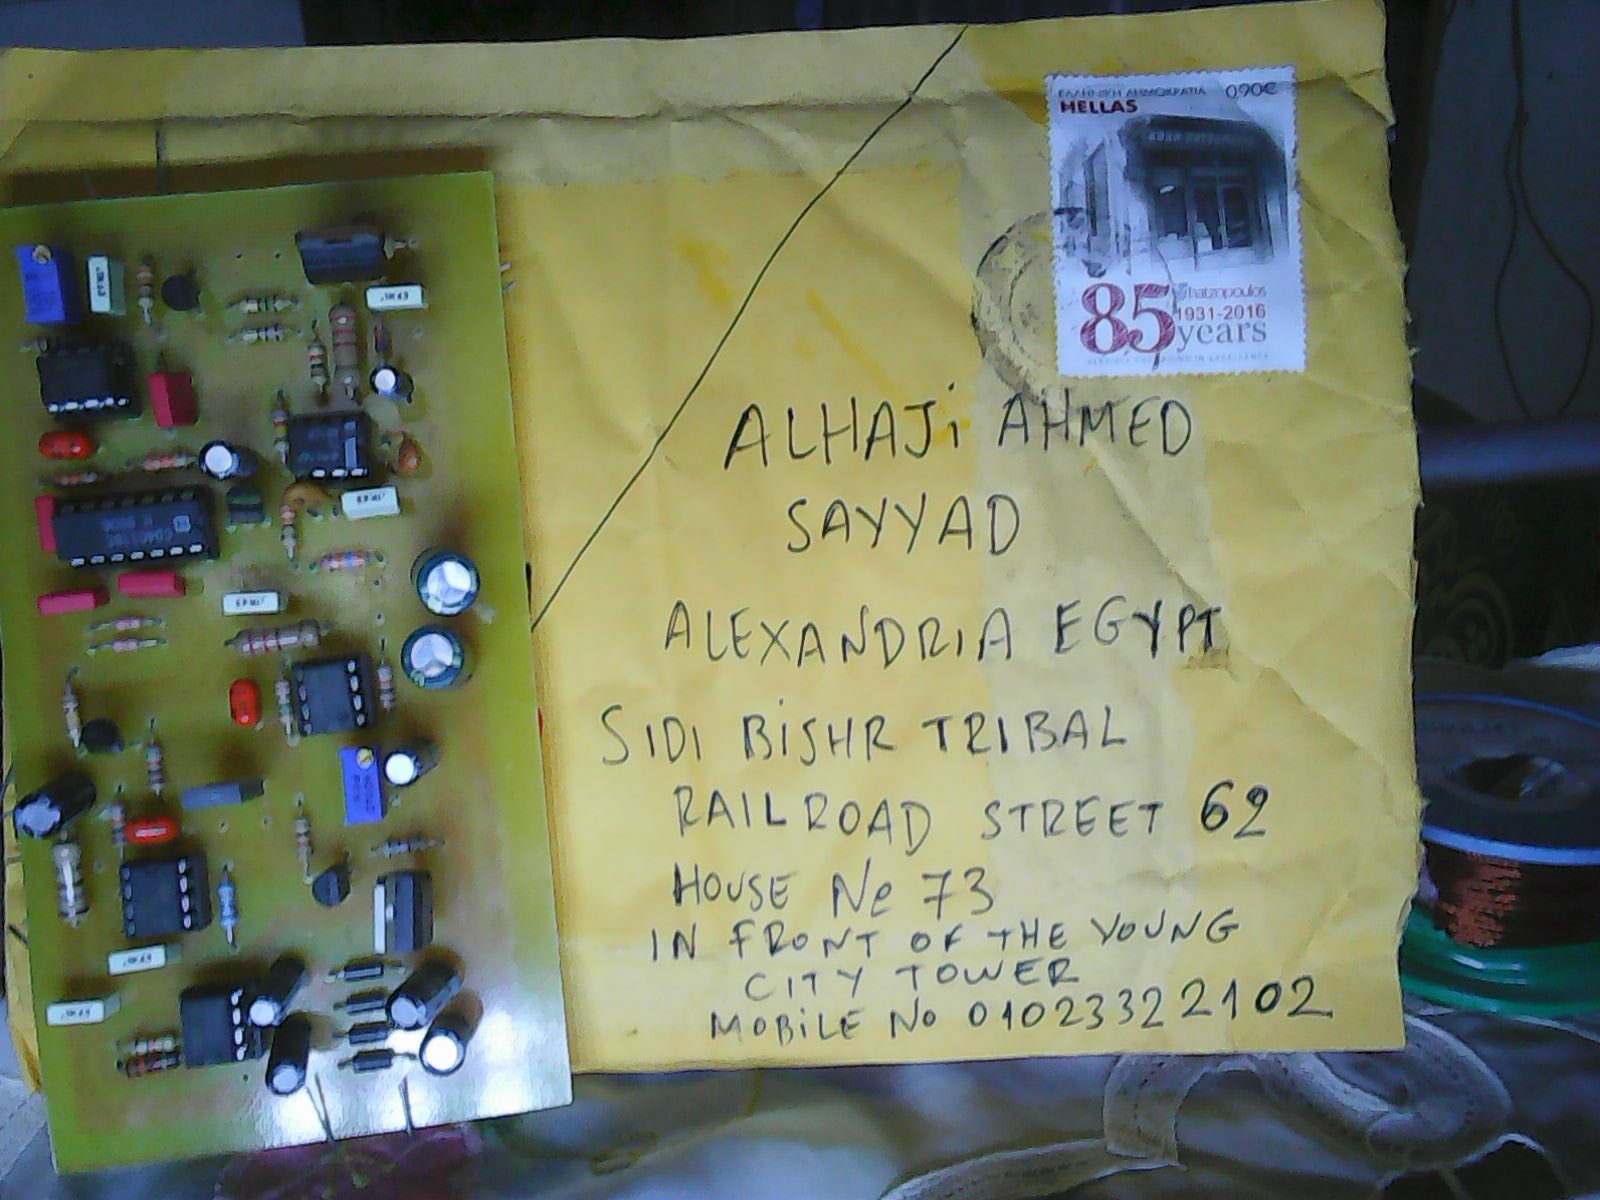 ΕΛΛΗΝΙΚΗ ΔΗΜΟΚΡΑΤΙΑ 0,90€
HELLAS
85 hatzopoulos
1931-2016
years
ALHAJi AHMED
SAYYAD
ALEXANDRIA EGYPT
SIDI BISHR TRIBAL
RAILROAD STREET 62
HOUSE No 73
IN FRONT OF THE YOUNG
CITY TOWER
MOBiLE No 01023322102